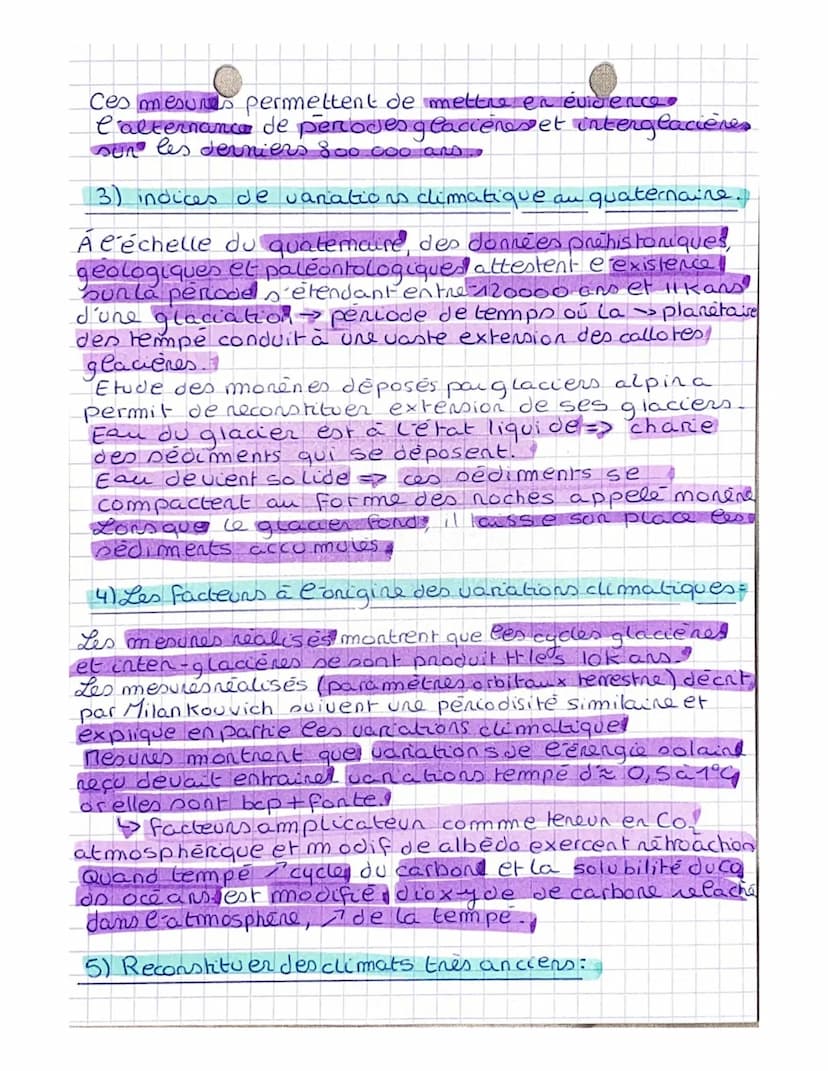 Ces mesures permettent de mettre en évidence
l'alternance de périodes glacières et interglacières
sur les derniers 800 000 ans.
3) indices de variations climatique au quaternaire.
À l'échelle du quaternaire, des données préhistoriques,
géologiques et paléontologiques attestent l'existence
sur la période s'étendant entre -120000 ans et 11K ans
d'une glaciation → période de temps où la ↘ planétaire
des tempé conduit à une vaste extension des callotes
glacières.
Etude des morènes déposés par glaciers alpins
permit de reconstituer extension de ses glaciers.
Eau du glacier est à l'état liquide => charie
des sédiments qui se déposent.
Eau devient solide => ces sédiments se
compactent au forme des roches appelé morène
Lorsque le glacier fond, il laisse son place les
sédiments accumulés.
4) Les facteurs à l'origine des variations climatiques :
Les mesures réalisés montrent que les cycles glacières
et inter-glacières se sont produit tt les 10k ans.
Les mesures réalisés (paramètres orbitaux terrestre) décrit
par Milankouvich suivent une périodisité similaire et
explique en partie les variations climatique
Mesures montrent que variations de l'énergie solaire
reçu devait entrainer variations tempé d'≈ 0,5 à 1°C
or elles sont bcp + forte.
↳ facteurs amplicateur comme teneur en CO2
atmosphérique et modif de albédo exercent rétroaction
Quand tempé ↗ cycle du carbone et la solubilité du CO2
ds océans est modifié, dioxyde de carbone relaché
dans l'atmosphère, ↗ de la tempé.
5) Reconstituer des climats très anciens :